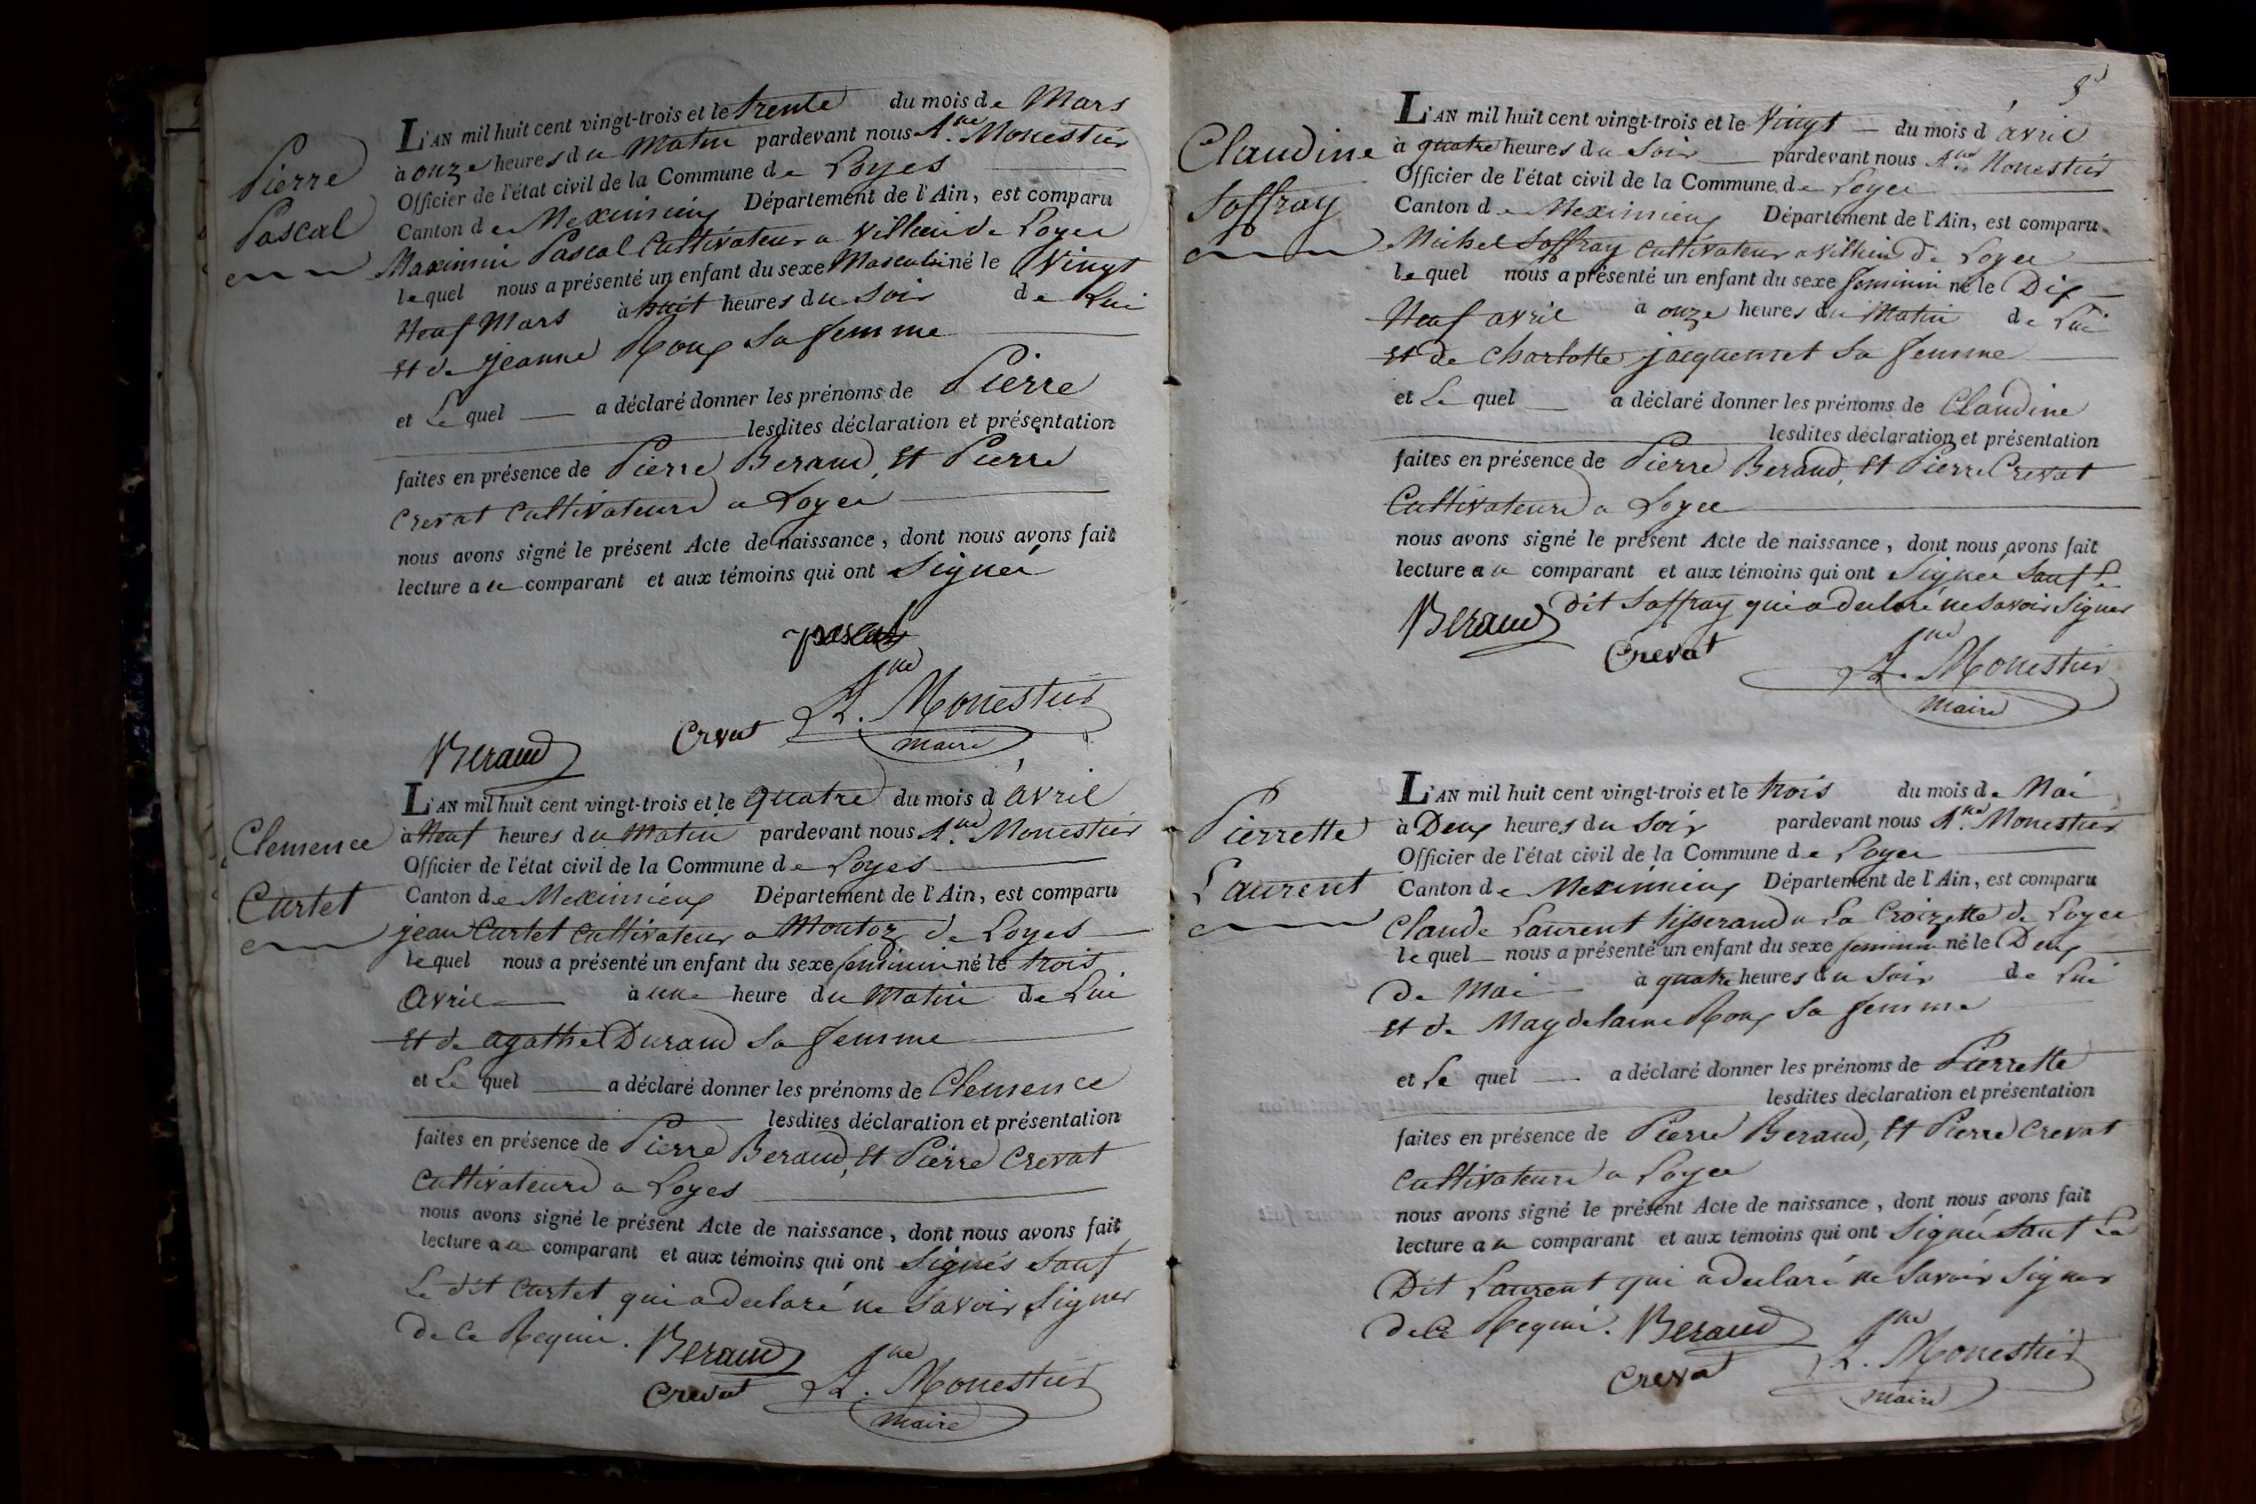 Pierre
Pascal
L'AN mil huit cent vingt-trois et le trente du mois de Mars
à onze heures du Matin pardevant nous A.ne Monestier
Officier de l'état civil de la Commune de Loyes
Canton de Meximieux Département de l'Ain, est comparu
Maximin Pascal Cultivateur a Villieu de Loyes
lequel nous a présenté un enfant du sexe Masculin né le Vingt
Neuf Mars à huit heures du Soir de Lui
Et de jeanne Roux Sa femme
et Le quel a déclaré donner les prénoms de Pierre
lesdites déclaration et présentation
faites en présence de Pierre Beraud, Et Pierre
Crevat Cultivateurs a Loyes
nous avons signé le présent Acte de naissance, dont nous avons fait
lecture au comparant et aux témoins qui ont Signés
pascal
A.ne Monestier
Crevat
maire
Beraud
Clemence
Curtet
L'AN mil huit cent vingt-trois et le quatre du mois d'avril
à Neuf heures du Matin pardevant nous A.ne Monestier
Officier de l'état civil de la Commune de Loyes
Canton de Meximieux Département de l'Ain, est comparu
jean Curtet Cultivateur a Montoz de Loyes
lequel nous a présenté un enfant du sexe feminin né le trois
Avril à une heure du Matin de Lui
Et de agathe Durand Sa femme
et Le quel a déclaré donner les prénoms de Clemence
lesdites déclaration et présentation
faites en présence de Pierre Beraud, Et Pierre Crevat
Cultivateurs a Loyes
nous avons signé le présent Acte de naissance, dont nous avons fait
lecture au comparant et aux témoins qui ont Signés Sauf
Le dit Curtet qui a declaré ne Savoir Signer
de Ce Requis. Beraud
Crevat A.ne Monestier
maire
Claudine
Soffray
L'AN mil huit cent vingt-trois et le Vingt du mois d'avril
à quatre heures du Soir pardevant nous A.ne Monestier
Officier de l'état civil de la Commune de Loyes
Canton de Meximieux Département de l'Ain, est comparu
Michel Soffray Cultivateur a Villieu de Loyes
lequel nous a présenté un enfant du sexe feminin né le Dix
Neuf avril à onze heures du Matin de Lui
Et de Charlotte jacquemet Sa femme
et Le quel a déclaré donner les prénoms de Claudine
lesdites déclaration et présentation
faites en présence de Pierre Beraud, Et Pierre Crevat
Cultivateurs a Loyes
nous avons signé le présent Acte de naissance, dont nous avons fait
lecture au comparant et aux témoins qui ont Signés Sauf Le
Dit Soffray qui a declaré ne Savoir Signer
Beraud
Crevat A.ne Monestier
maire
Pierrette
Laurent
L'AN mil huit cent vingt-trois et le trois du mois de Mai
à Deux heures du Soir pardevant nous A.ne Monestier
Officier de l'état civil de la Commune de Loyes
Canton de Meximieux Département de l'Ain, est comparu
Claude Laurent tisserand a La Croizette de Loyes
lequel nous a présenté un enfant du sexe feminin né le Deux
de Mai à quatre heures du Soir de Lui
Et de Magdelaine Roux Sa femme
et Le quel a déclaré donner les prénoms de Pierrette
lesdites déclaration et présentation
faites en présence de Pierre Beraud, Et Pierre Crevat
Cultivateurs a Loyes
nous avons signé le présent Acte de naissance, dont nous avons fait
lecture au comparant et aux témoins qui ont Signés Sauf Le
Dit Laurent qui a declaré ne Savoir Signer
de Ce Requis. Beraud
Crevat A.ne Monestier
maire